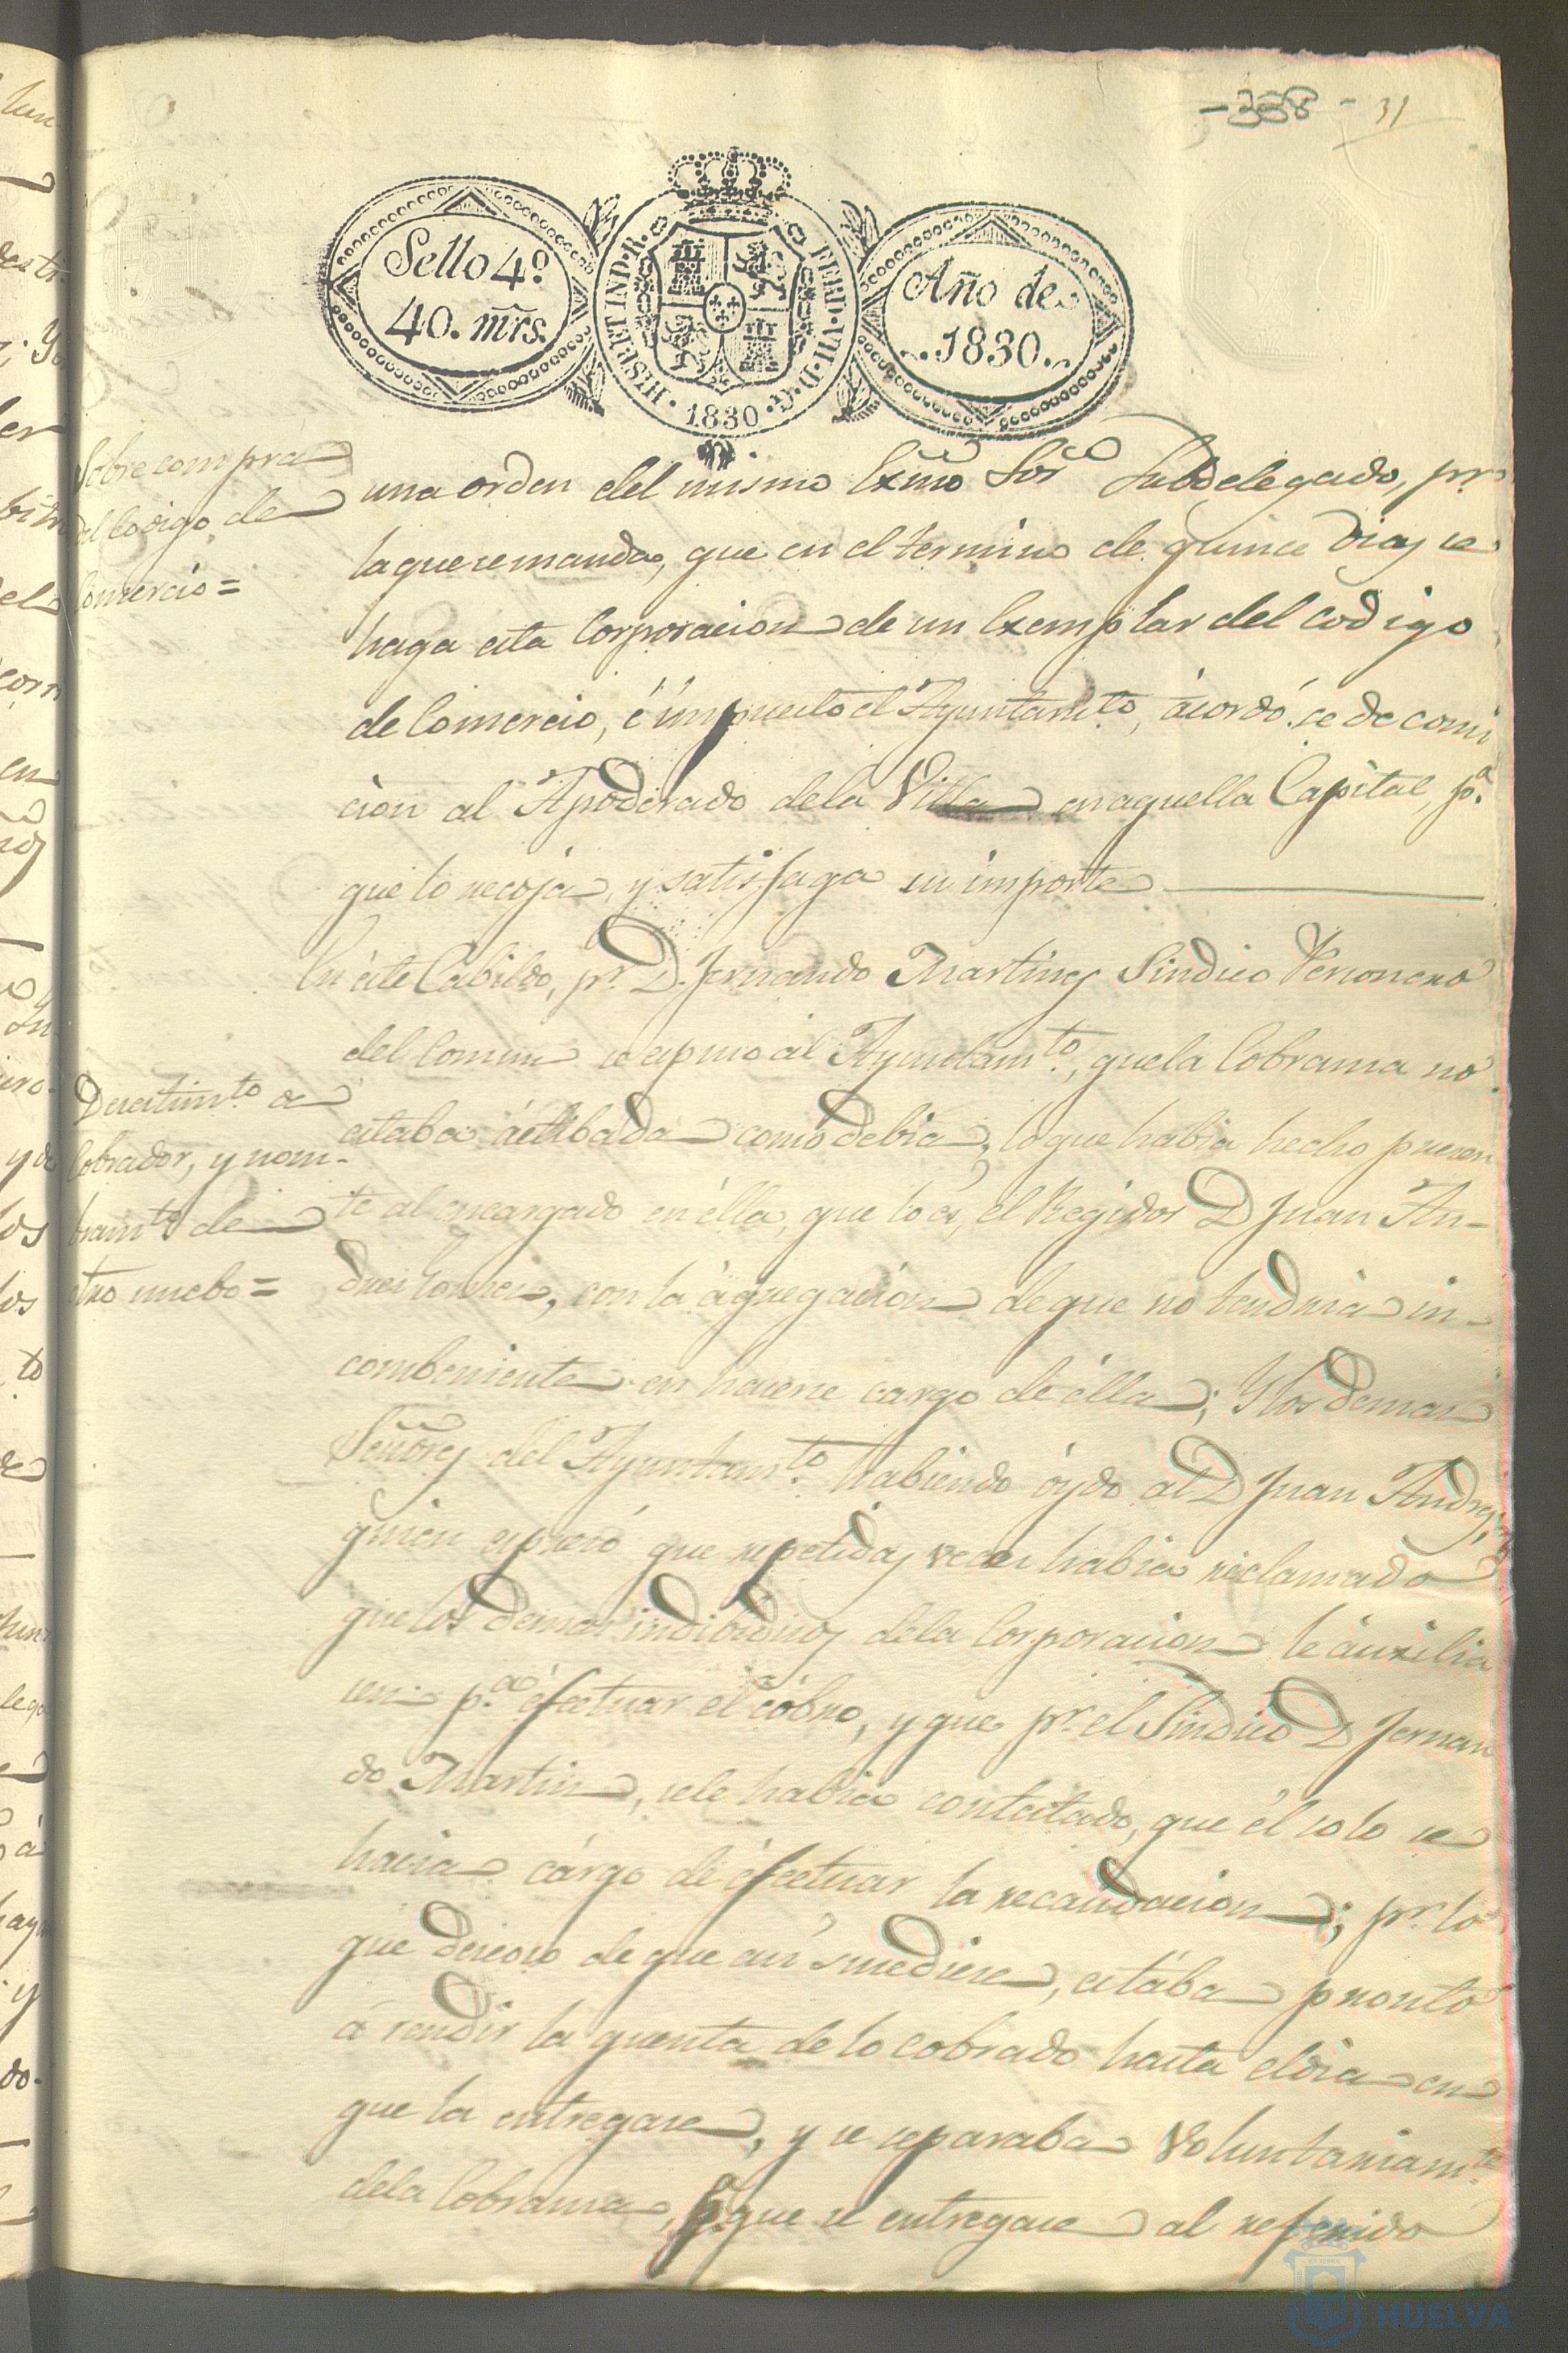 -338- 31
Sello 4º
40. mrs.
HISP. ET IND. R. FERD. VII. D. G. 1830
Año de
1830.
Sobre compra
del Codigo, de
Comercio=
una orden del mismo Exmo Sor Subdelegado, pr
la que se manda, que en el termino de quince dias se
haga esta Corporacion de un Exemplar del codigo
de Comercio, é impuesto el Ayuntamto, acordó se de comi
cion al Apoderado de la Villa en aquella Capital, pa
que lo recoja, y satisfaga su importe
En este Cabildo, pr D. Fernando Martinez Sindico Personero
del Comun se espuso al Ayuntamto, que la Cobranza no
estaba activada como debia, lo que habia hecho presen
te al encargado en élla, que lo es, el Regidor D Juan An-
dres, con la agregación de que no tendria in-
combeniente en hacerse cargo de élla; Y los demas
Señores del Ayuntamto habiendo óydo al D Juan Andres,
quien espresó que repetidas veces habia reclamado
que los demas individuos de la Corporacion le áuxilia
sen pa efectuar el cobro, y que pr el Sindico D Fernan
do Martin, se le habia contestado, que él solo se
hacia cárgo de éfectuar la recaudacion; pr lo
que deseoso de que asi sucediese, estába pronto
á rendir la quenta de lo cobrado hasta el dia en
que la entregase, y se separaba Voluntariamte
de la Cobranza, pa que se entregase al referido
Desestimto de
Cobrador, y nom-
bramto de
otro nuebo=
HUELVA